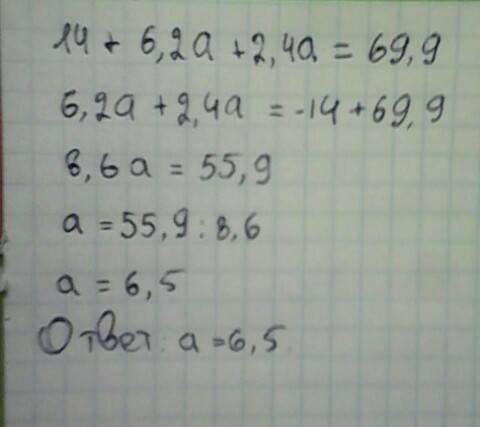 14 + 6,2a + 2,4a = 69,9
6,2a + 2,4a = -14 + 69,9
8,6a = 55,9
a = 55,9 : 8,6
a = 6,5
Ответ: a = 6,5